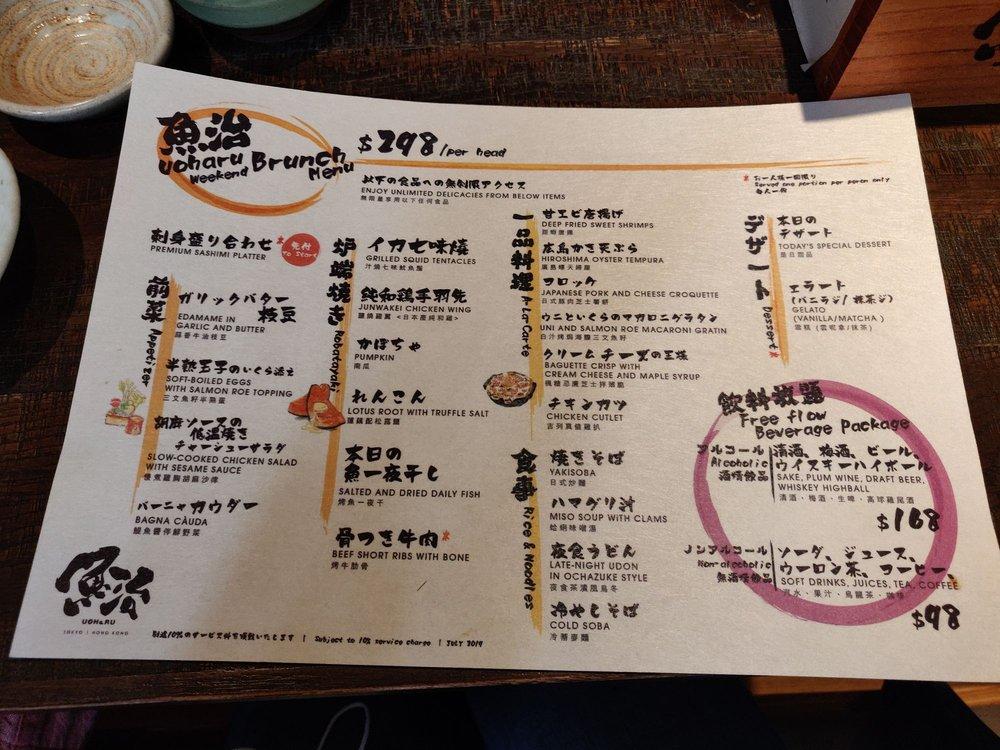 魚治
Uoharu Brunch
Weekend Menu
$298/per head
以下の食品への無制限アクセス
ENJOY UNLIMITED DELICACIES FROM BELOW ITEMS
無限量享用以下任何食品
*お一人様一回限り
Served one portion per person only
每人一份
刺身盛り合わせ*
PREMIUM SASHIMI PLATTER
先付
To Start
前菜 Appetizer
ガリックバター
枝豆
EDAMAME IN
GARLIC AND BUTTER
蒜香牛油枝豆
半熟玉子のいくら添え
SOFT-BOILED EGGS
WITH SALMON ROE TOPPING
三文魚籽半熟蛋
胡麻ソースの
低温焼き
チャーシューサラダ
SLOW-COOKED CHICKEN SALAD
WITH SESAME SAUCE
慢煮雞胸胡麻沙律
バーニャカウダー
BAGNA CÀUDA
鯷魚醬伴鮮野菜
炉端焼き Robatayaki
イカ七味燒
GRILLED SQUID TENTACLES
汁燒七味魷魚鬚
純和鶏手羽先
JUNWAKEI CHICKEN WING
鹽燒雞翼 <日本產純和雞>
かぼちゃ
PUMPKIN
南瓜
れんこん
LOTUS ROOT WITH TRUFFLE SALT
蓮藕配松露鹽
本日の
魚一夜干し
SALTED AND DRIED DAILY FISH
烤魚一夜干
骨つき牛肉*
BEEF SHORT RIBS WITH BONE
烤牛肋骨
一品料理 A-La-Carte
甘エビ唐揚げ
DEEP FRIED SWEET SHRIMPS
甜蝦唐揚
広島かき天ぷら
HIROSHIMA OYSTER TEMPURA
廣島蠔天婦羅
コロッケ
JAPANESE PORK AND CHEESE CROQUETTE
日式豚肉芝士薯餅
ウニといくらのマカロニグラタン
UNI AND SALMON ROE MACARONI GRATIN
白汁烤焗海膽三文魚籽
クリームチーズの王様
BAGUETTE CRISP WITH
CREAM CHEESE AND MAPLE SYRUP
楓糖忌廉芝士拌薄脆
チキンカツ
CHICKEN CUTLET
吉列真值雞扒
食事 Rice & Noodles
焼きそば
YAKISOBA
日式炒麵
ハマグリ汁
MISO SOUP WITH CLAMS
蛤蜊味噌湯
夜食うどん
LATE-NIGHT UDON
IN OCHAZUKE STYLE
夜食茶漬風烏冬
冷やしそば
COLD SOBA
冷蕎麥麵
デザート Dessert*
本日の
デザート
TODAY'S SPECIAL DESSERT
是日甜品
ェラート
(バニラジ/抹茶ジ)
GELATO
(VANILLA/MATCHA )
雪糕 (雲呢拿/抹茶)
飲料放題
Free flow
Beverage Package
アルコール
Alcoholic
酒精飲品
清酒、梅酒、ビール、
ウイスキーハイボール
SAKE, PLUM WINE, DRAFT BEER,
WHISKEY HIGHBALL
清酒・梅酒・生啤・高球雞尾酒
$168
ノンアルコール
Non-alcoholic
無酒精飲品
ソーダ、ジュース、
ウーロン茶、コーヒー、
SOFT DRINKS, JUICES, TEA, COFFEE
汽水・果汁・烏龍茶・咖啡
$98
魚治
UOHARU
TOKYO | HONG KONG
別途10%のサービス料を頂戴いたします | Subject to 10% service charge | JULY 2019